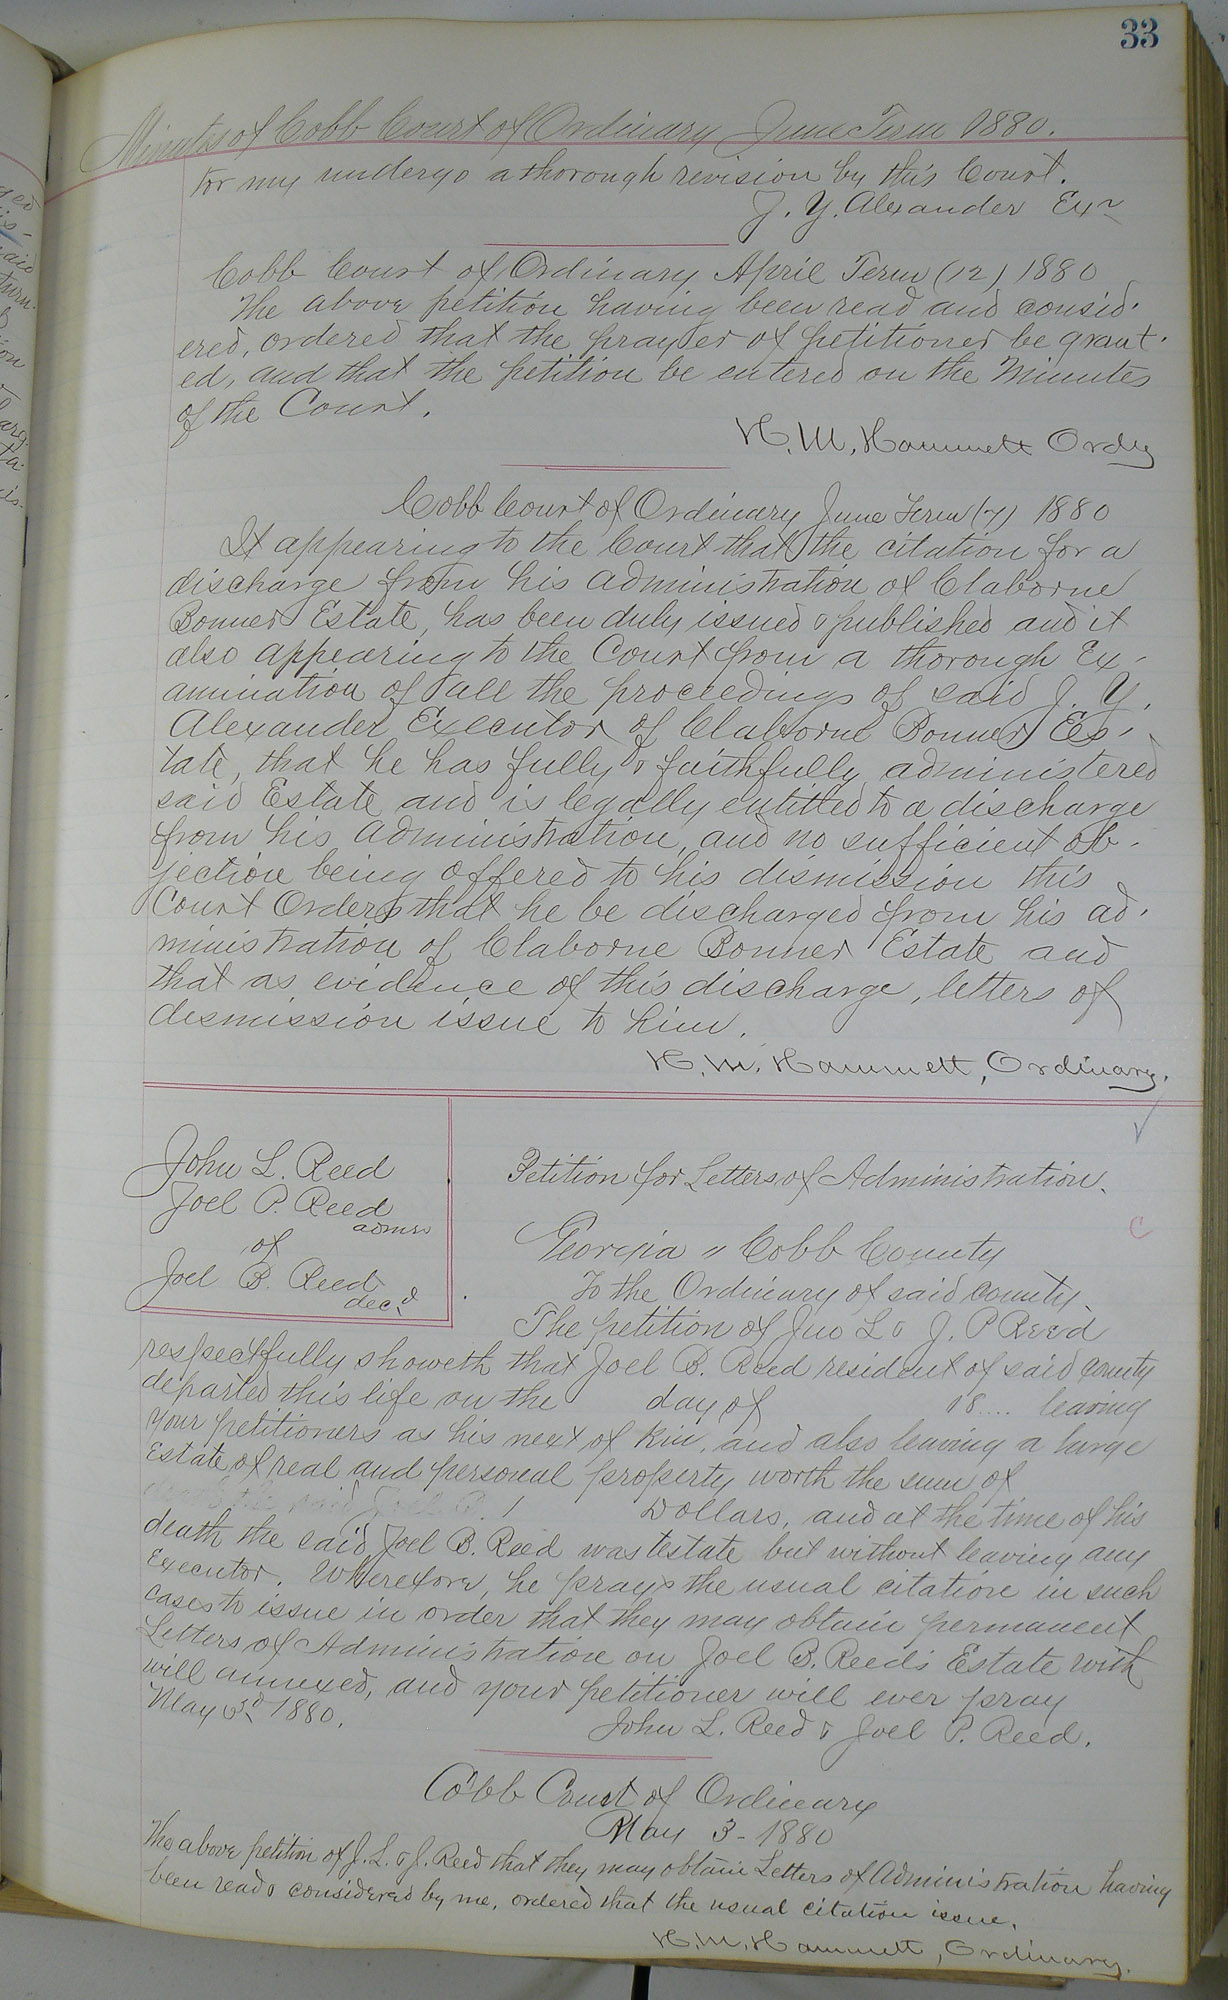 33
Minutes of Cobb Court of Ordinary June Term 1880.
for my undergo a thorough revision by this Court.
J. Y. Alexander Exr
Cobb Court of Ordinary April Term (12) 1880
The above petition having been read and consid-
ered, ordered that the prayer of petitioner be grant-
ed, and that the petition be entered on the Minutes
of the Court.
H. M. Hammett Ordy
Cobb Court of Ordinary June Term (7) 1880
It appearing to the Court that the citation for a
discharge from his administration of Claborne
Bonner Estate, has been duly issued & published and it
also appearing to the Court from a thorough Ex-
amination of all the proceedings of said J. Y.
Alexander Executor of Claborne Bonner Es-
tate, that he has fully & faithfully administered
said Estate and is legally entitled to a discharge
from his administration, and no sufficient ob-
jection being offered to his dismission this
Court Orders that he be discharged from his ad-
ministration of Claborne Bonner Estate and
that as evidence of this discharge, letters of
dismission issue to him.
H. M. Hammett, Ordinary.
John L. Reed
Joel P. Reed
admrs
of
Joel B. Reed
decd
Petition for Letters of Administration.
C
Georgia " Cobb County
To the Ordinary of said county.
The petition of Jno L & J. P Reed
respectfully showeth that Joel B. Reed resident of said county
departed this life on the day of 18.... leaving
your petitioners as his next of kin, and also leaving a large
Estate of real and personal property worth the sum of
Dollars, and at the time of his
death the said Joel B. Reed was testate but without leaving any
Executor. Wherefore, he prays the usual citation in such
cases to issue in order that they may obtain permanent
Letters of Administration on Joel B. Reed's Estate with
will annexed, and your petitioner will ever pray
May 3d 1880.
John L. Reed & Joel P. Reed.
Cobb Court of Ordinary
May 3 - 1880
The above petition of J. L. & J. Reed that they may obtain Letters of Administration having
been read & considered by me, ordered that the usual citation issue.
H. M. Hammett, Ordinary.